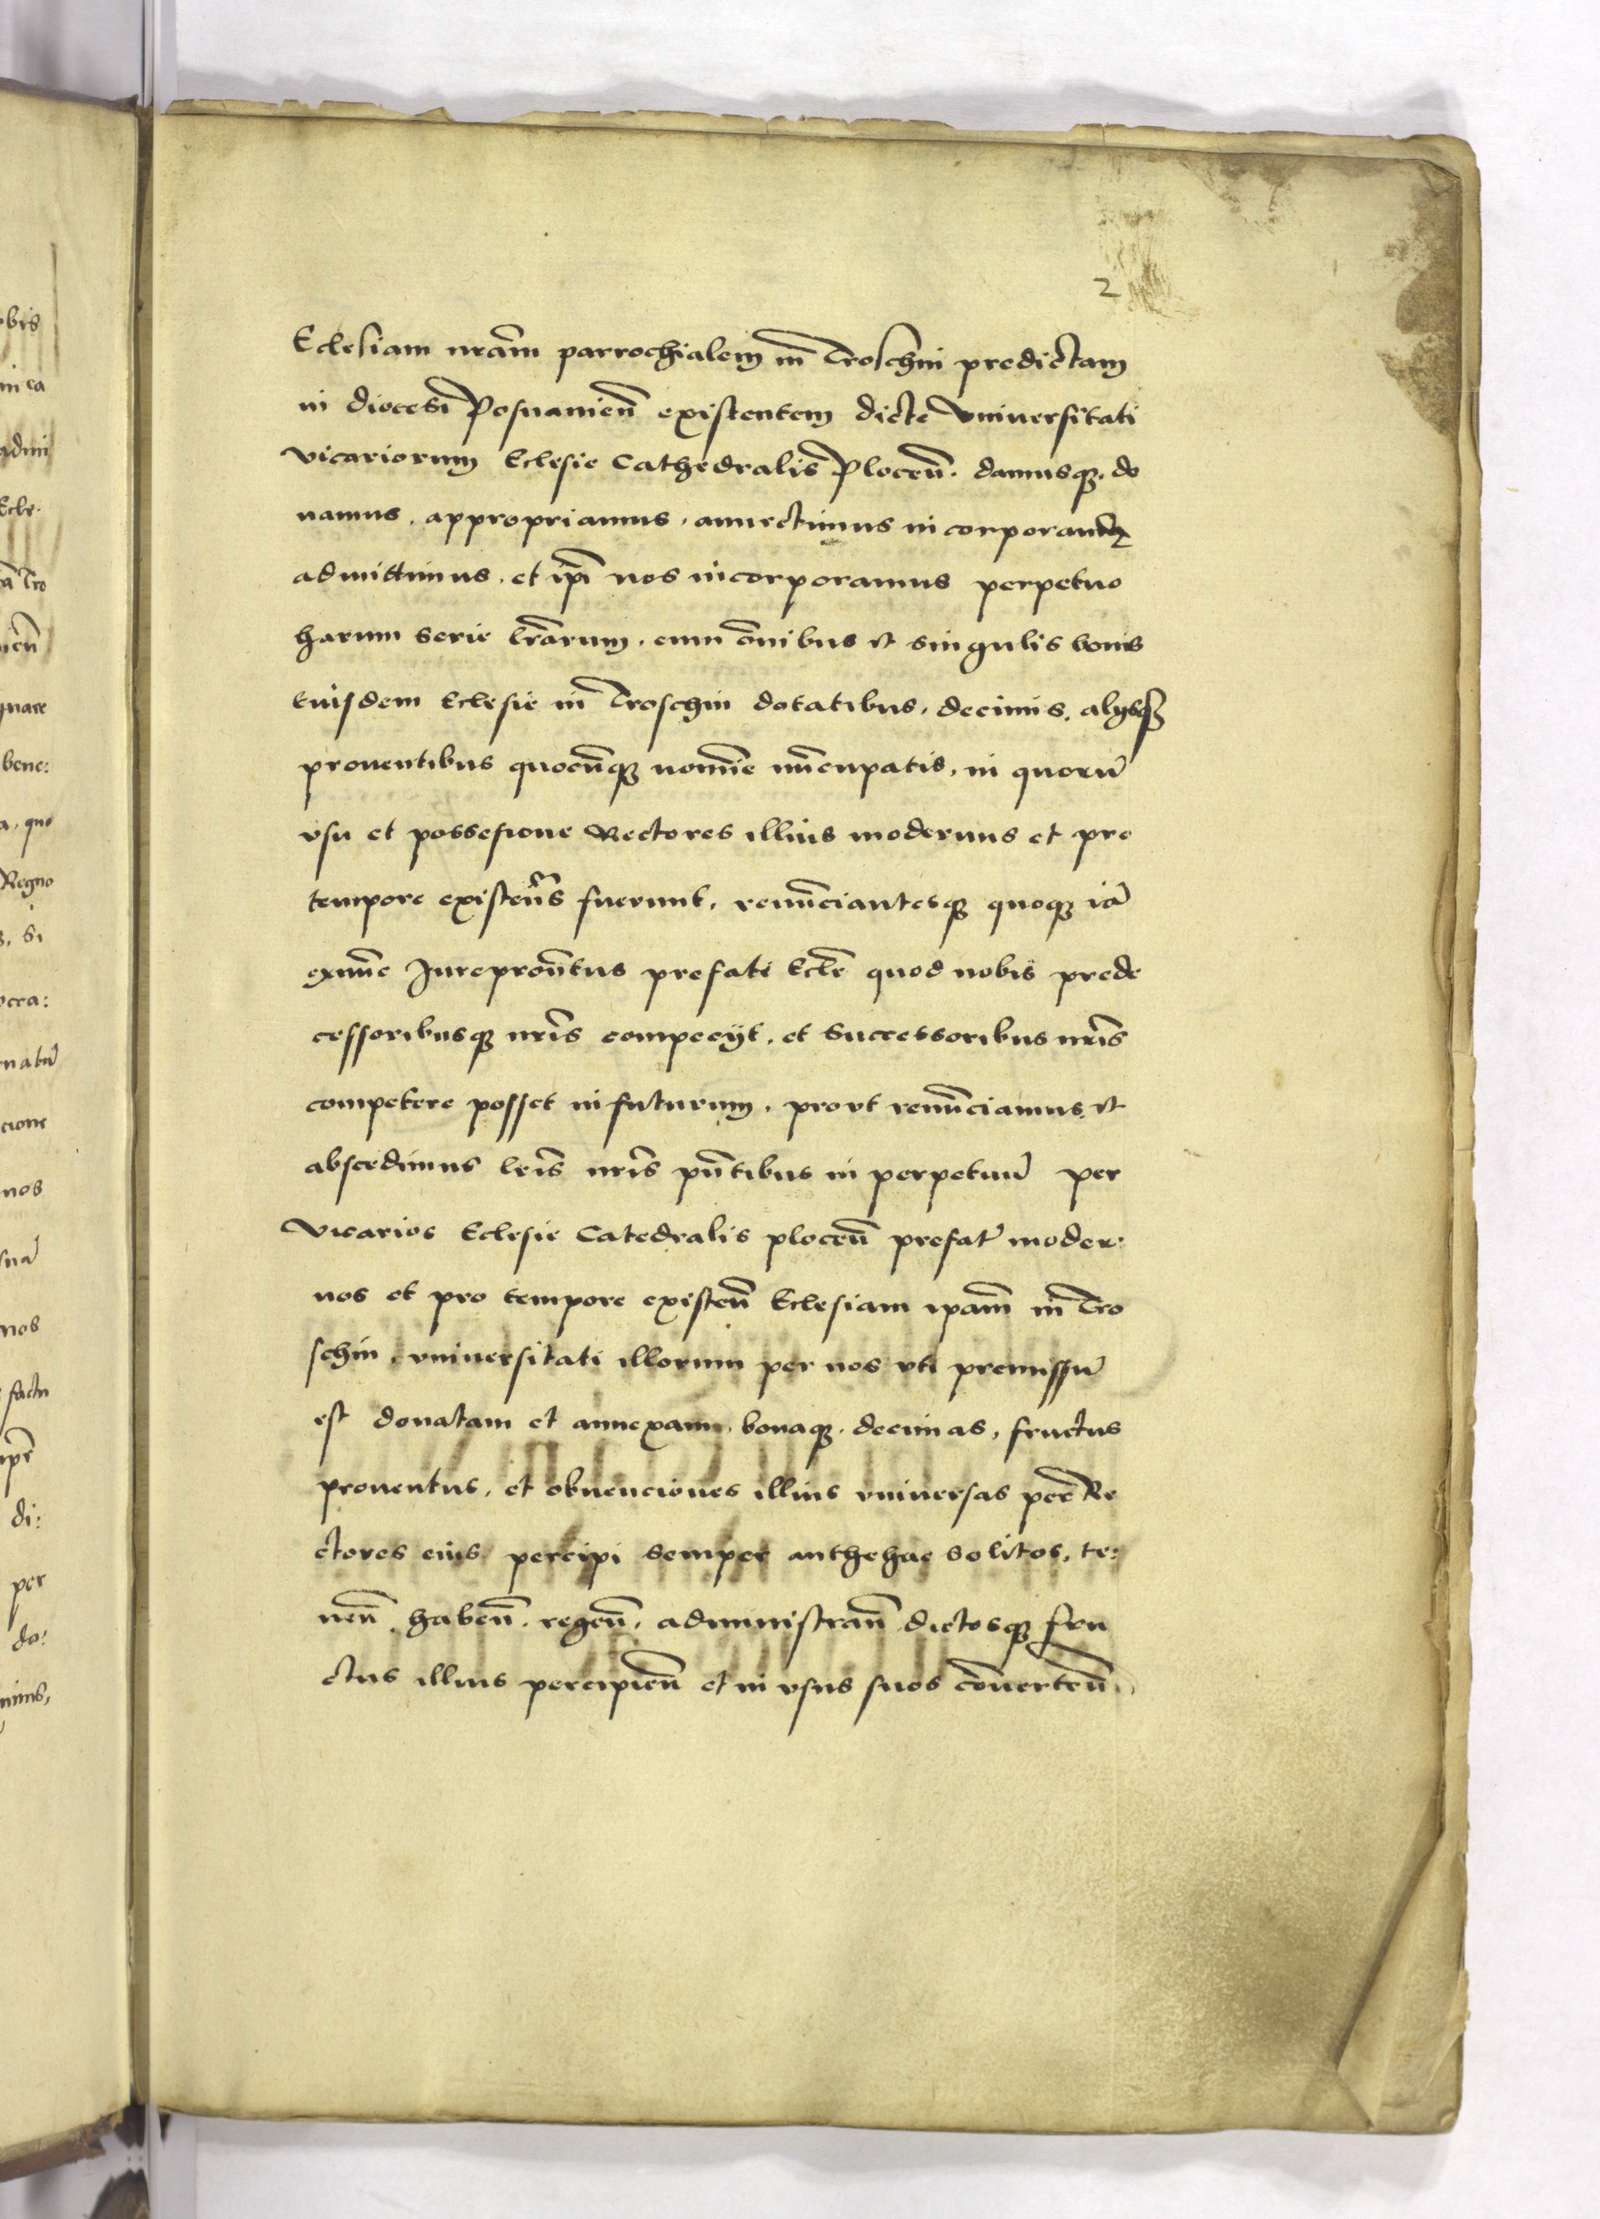 2
Eclesiam nram̄ parrochialem in Troschin predictam
in diocesi Posnanien̄ existentem dicte Vniuersitati
vicariorum Eclesie Cathedralis Plocen̄. damusq₃. do
namus. appropriamus. annectimus in corporandū
admittimus. et ip̄i nos incorporamus perpetuo
harum serie lr̄arum. cum ōnibus et singulis bonis
euisdem Eclesie in Troschin dotatibus. decimis. alysq₃
prouentibus quocūnq₃ nomīe nūcupatis. in quorū
vsu et possesione Rectores illius modernus et pro
tempore existen̄s fuerunt. renūnciantesq₃ quoq₃ iā
Jurepron̄tus prefati Ecle̅ quod nobis prede
cessoribusq₃ nrīs competyt. et Successoribus nrīs
competere posset in futurum. prout renūnciamus et
abscedimus lrīs nrīs pn̄tibus in perpetuū per
Vicarios Eclesie Catedralis plocen̄ prefat̄ moder:
nos et pro tempore existen̄ Eclesiam ipam̄ in Tro
schin. vniuersitati illorum per nos vti premissū
est donatam et annexam. bonaq₃. decimas, fructus
prouentus. et obuenciones illius vniuersas per Re
ctores eius percipi semper anthehac solitos, te:
nen̄. haben̄. regen̄. administran̄ dictosq₃ fru
ctus illius percipien̄ et in vsus suos cōuerten̄.